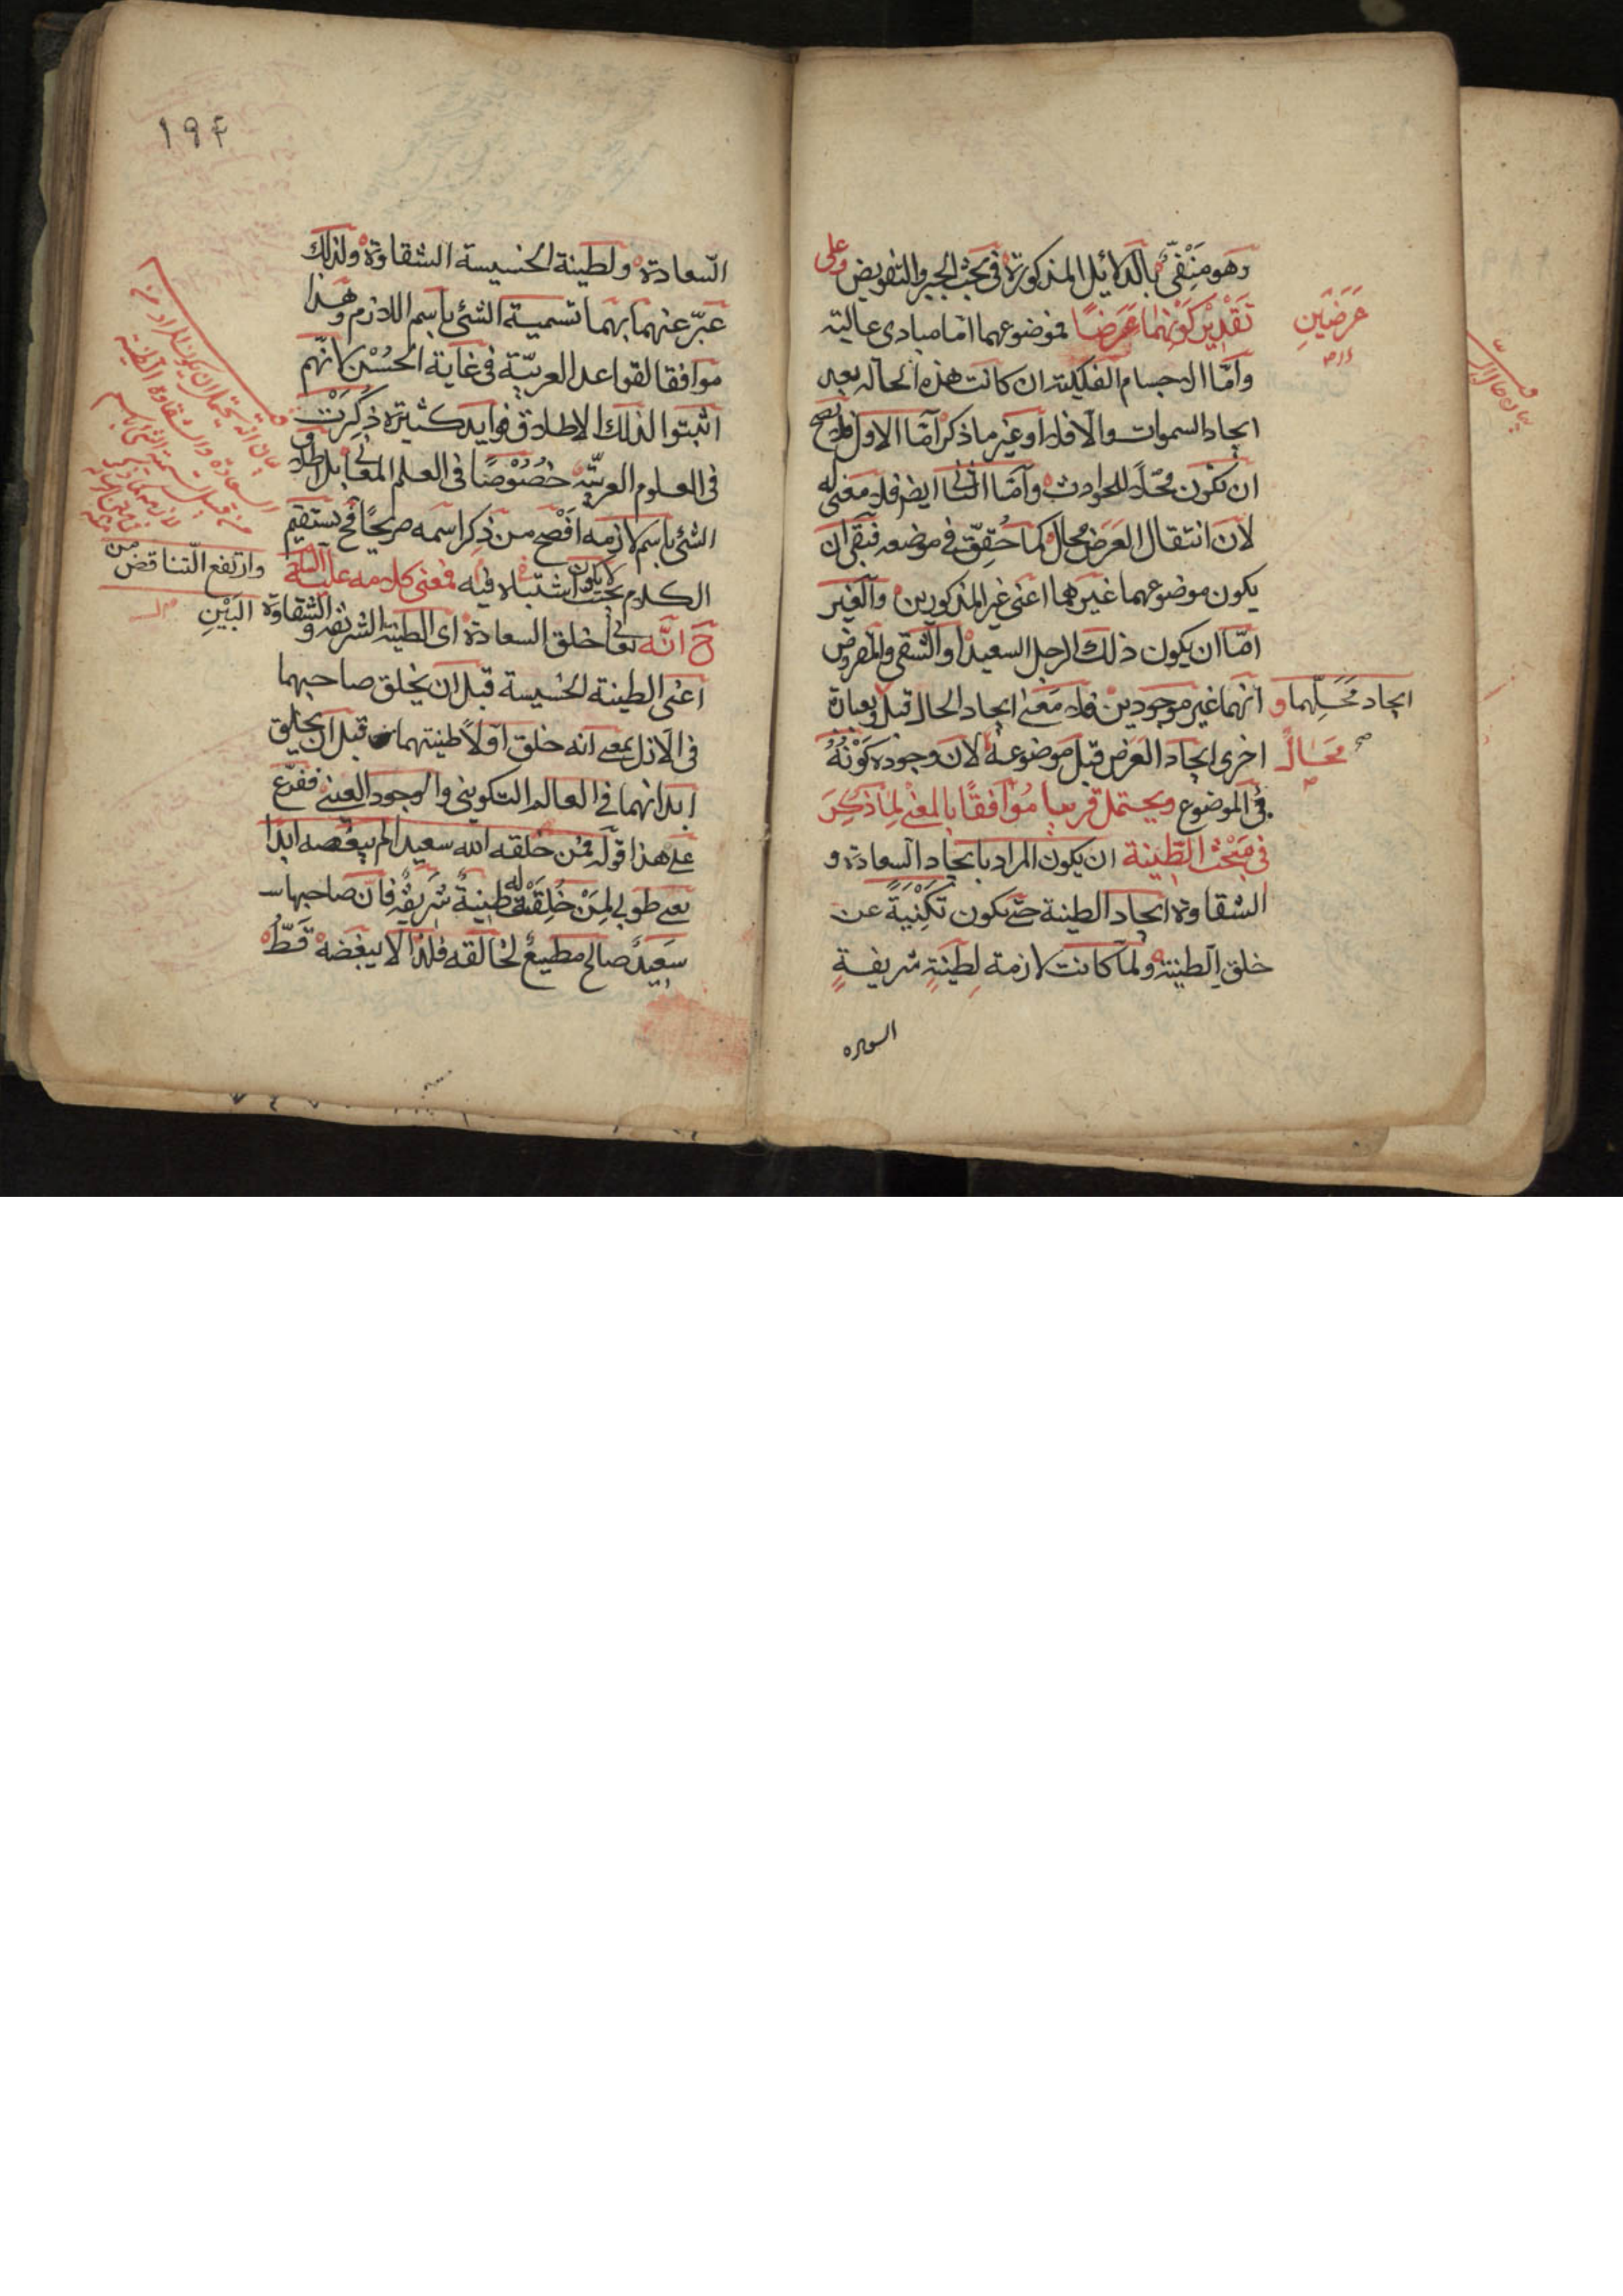 وهو منفيّ بالدلائل المذكورة في بحث الجبر والتفويض وعلى
تقدير كونهما عرضًا فموضوعهما امّا مبادى عالية
عَرَضَينِ
وامّا الاجسام الفلكية ان كانت هذه الحالة بعد
ايجاد السموات والافلاك او غير ما ذكر امّا الاول فلا يصح
ان تكون محلّاً للحوادث وامّا الثانى ايضا فلا معنى له
لانّ انتقال العَرَض محال كما حُقِقّ في موضعه فبقى ان
يكون موضوعهما غيرهما اعنى غير المذكورين والغير
امّا ان يكون ذلك الرجل السعيد او الشقى والمفروض
انهما غير موجودين فلا معنى ايجاد الحال قبل وبعبارة
ايجاد مَحَلِّهما و
اخرى ايجاد العرض قبل موضوعه لانّ وجوده كَوْنُهُ
محال
في الموضوع ويحتمل قريبا مُوافقًا بالمعنى لِما ذُكِرَ
في مَبْحَث الطينة ان يكون المراد بايجاد السعادة و
الشقاوة ايجاد الطينة حتى يكون تَكْنِيَةً عن
خلق الطينة ولمّا كانت لازمة لِطينَةٍ شريفةٍ
١٩۴
السّعادة ولطينة الخسيسة الشقاوة ولذلك
عبّر عنهما بهما تسمية الشئ باسم اللازم وهذا
موافقا لقواعد العربيّة في غاية الحُسْن لانّهم
اثبتوا لذلك الاطلاق فوايد كثيرة ذُكِرَتْ
في العلوم العربيّة خُصُوْصًا في العلم المعانى بل اطلاق
الشئ باسم لازمه اَفْصح من ذِكر اسمه صريحًا فح يستقيم
الكلام بحيث لا يكون اشتباه فيه فمعنى كلامه عليه السلام
وارتفع التّناقض من
البَيْنِ
ح انّه تعالى خلق السعادة اى الطينة الشريفة والشقاوة
اعنى الطينة الخسيسة قبل ان يخلق صاحبهما
في الازل بمعنى انه خلق اوّلاً طينتهما قبل ان يخلق
ابدانهما في العالم التكوينى والوجود العينى ففرّع
على هذا قوله فمن خلقه الله سعيدا لم يبغضه ابدًا
يعنى طوبى لِمَنْ خُلِقَتْ له طينةٌ شريفةٌ فانّ صاحبها
سَعِيدٌ صالح مطيعٌ لخالقه فلذا لا يبغضه قَطُّ